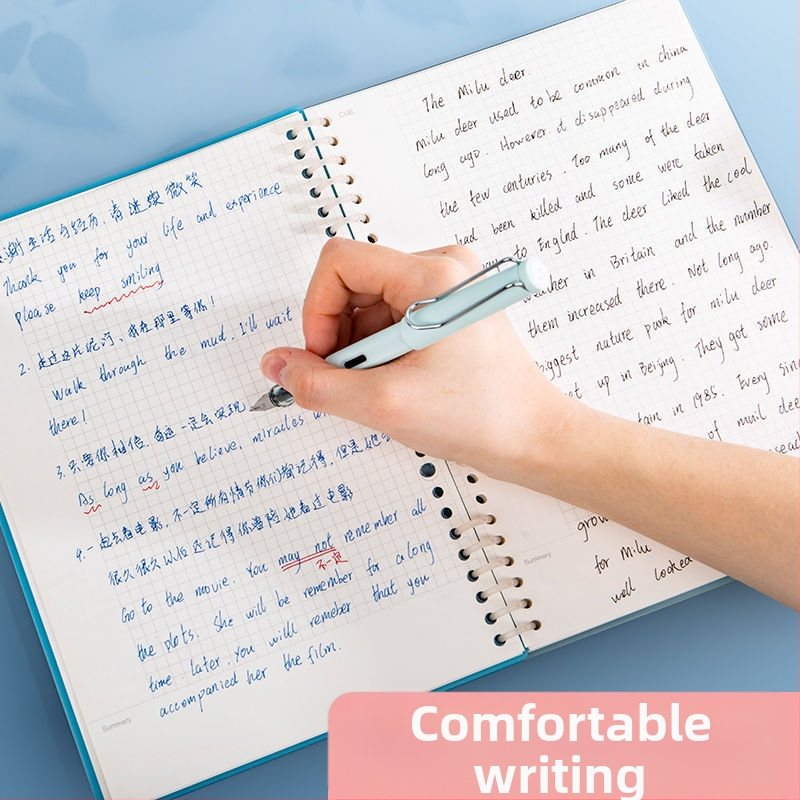 谢生活与经历，请继续微笑
Thank you for your life and experience
ploase keep smiling
2. 走过这片泥泞，我在那里等你！
Walk through the mud, I'll wait
there!
3. 只要你相信，奇迹一定会实现
As long as you believe, miracles
4. 一起去看电影，不一定所有情节你们都记得，但是她会
很久很久以后还记得你曾陪她看过电影
Go to the movie. You may not remember all
不一定
the plots. She will be remember for a long
time later. You willl remeber that you
accompanied her the film.
Summary
CUE
The Milu deer.
Milu deer used to be common in china
long ago. However it disappeared during
the few centuries. Too many of the deer
had been killed and some were taken
to Englnd. The deer liked the cool
weather in Britain and the number
them increased there. Not long ago.
biggest nature park for milu deer
set up in Beijing. They got some
in 1985. Every
of muil deer
Summary
for Milu
well looked
Comfortable
writing